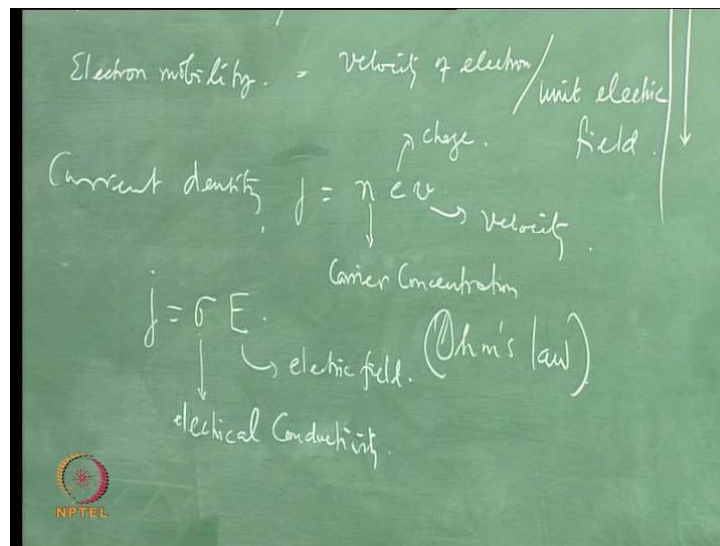 Electron mobility. = velocity of electron/unit electric field.
charge.
Current density, j = n e v. → velocity.
Carrier Concentration
j = σ E.
→ electric field. (Ohm's law)
electrical Conductivity.
NPTEL